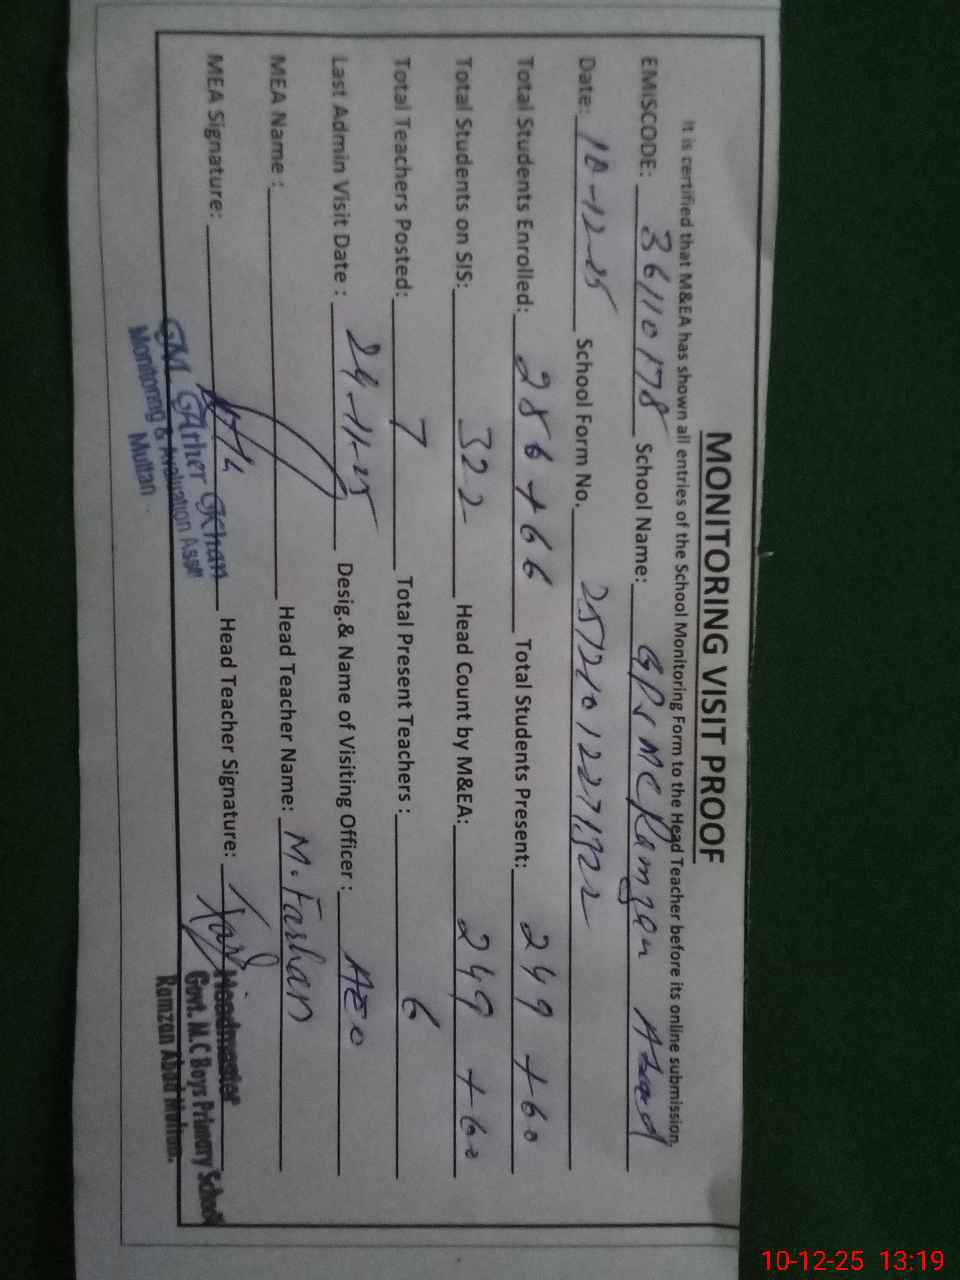 MONITORING VISIT PROOF
It is certified that M&EA has shown all entries of the School Monitoring Form to the Head Teacher before its online submission.
EMISCODE: 36110178 School Name: GPS MC Ramzan Abad
Date: 10-12-25 School Form No.
Total Students Enrolled: 286+66 Total Students Present: 249+60
Total Students on SIS: 322 Head Count by M&EA: 249+60
Total Teachers Posted: 7 Total Present Teachers : 6
Last Admin Visit Date : 24-11-25 Desig.& Name of Visiting Officer : AEO
MEA Name : Head Teacher Name: M. Farhan
MEA Signature: Head Teacher Signature:
Khan
Monitoring & Evaluation Asst
Multan
Headmaster
Govt. M.C Boys Primary School
Ramzan Abad Multan.
10-12-25 13:19